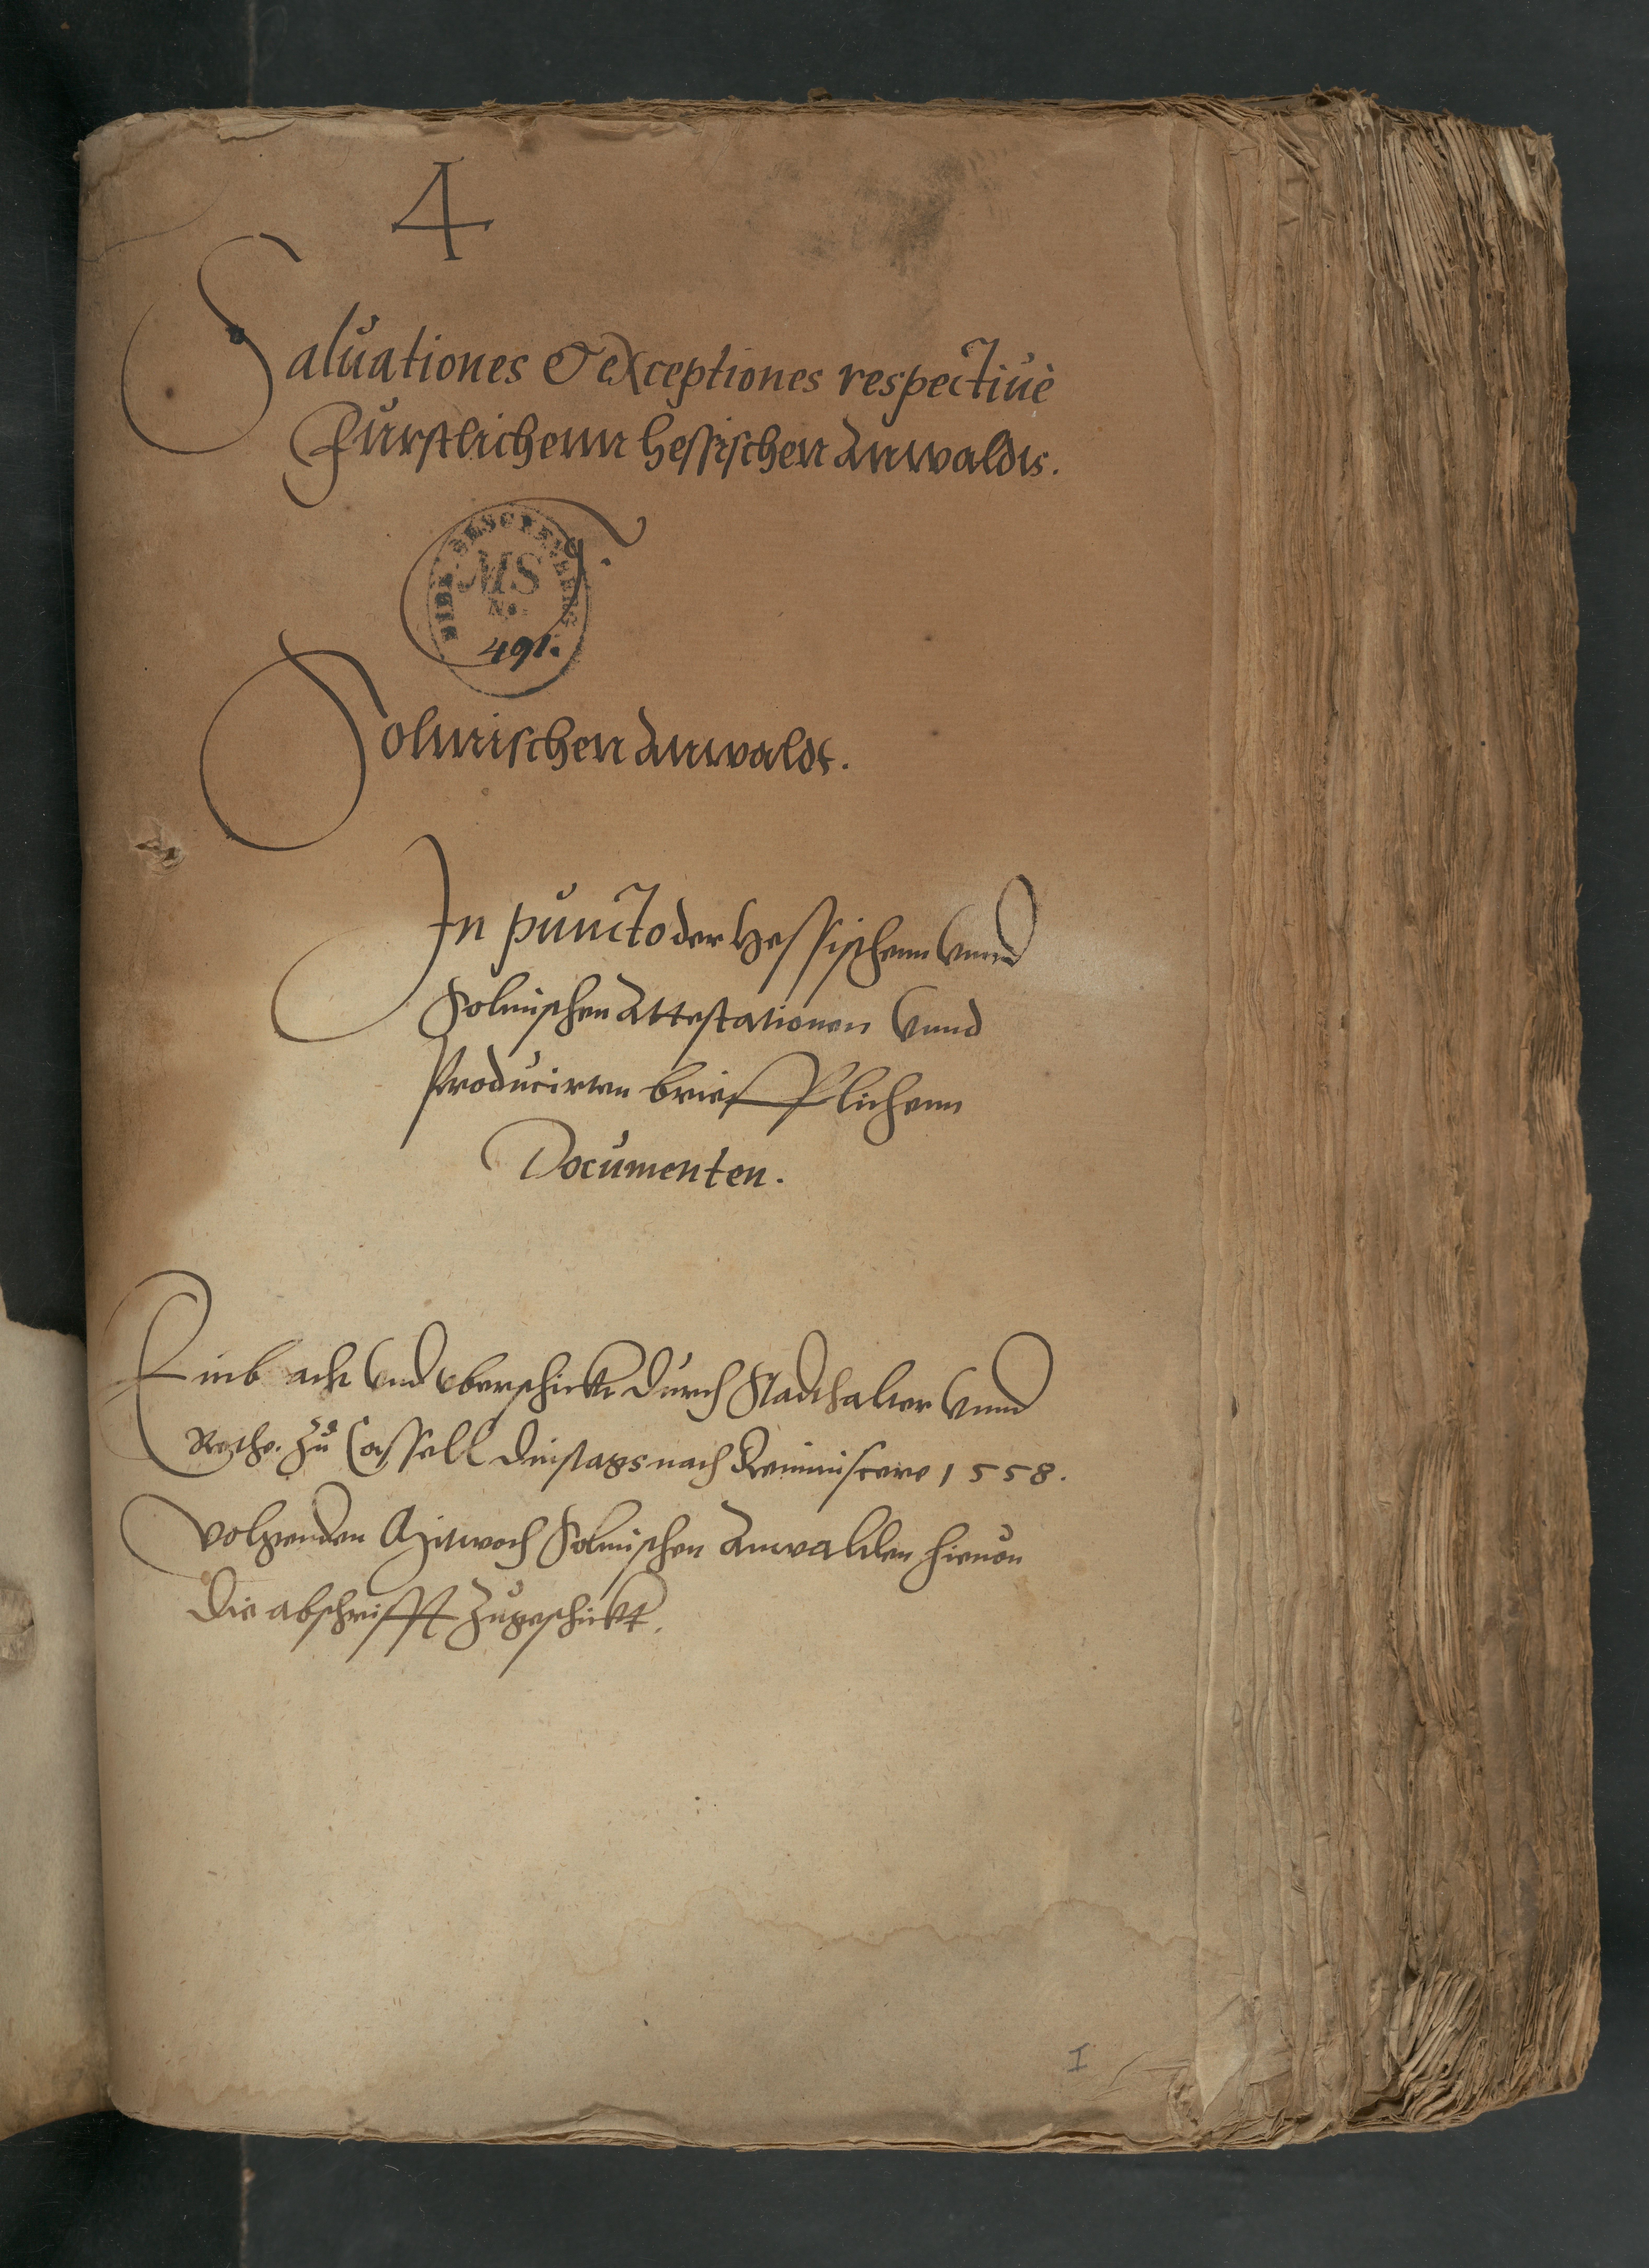 4
Saluationes & exceptiones respectiuè
Furstlichenn Hessischen Anwalds.
MS
No.
491.
Solmischen Anwalds.
In puncto der Hessischenn vnnd
Solmischen Attestationen vnnd
Producirten briefflichenn
Documenten.
Einbracht vnd vberschickt durch Stadthalter vnnd
Rethe zu Cassell Dinstags nach Reminiscere 1558.
Volgenden Mitwoch Solmischen Anwalden hieuon
die abschrifft zugeschickt.
I